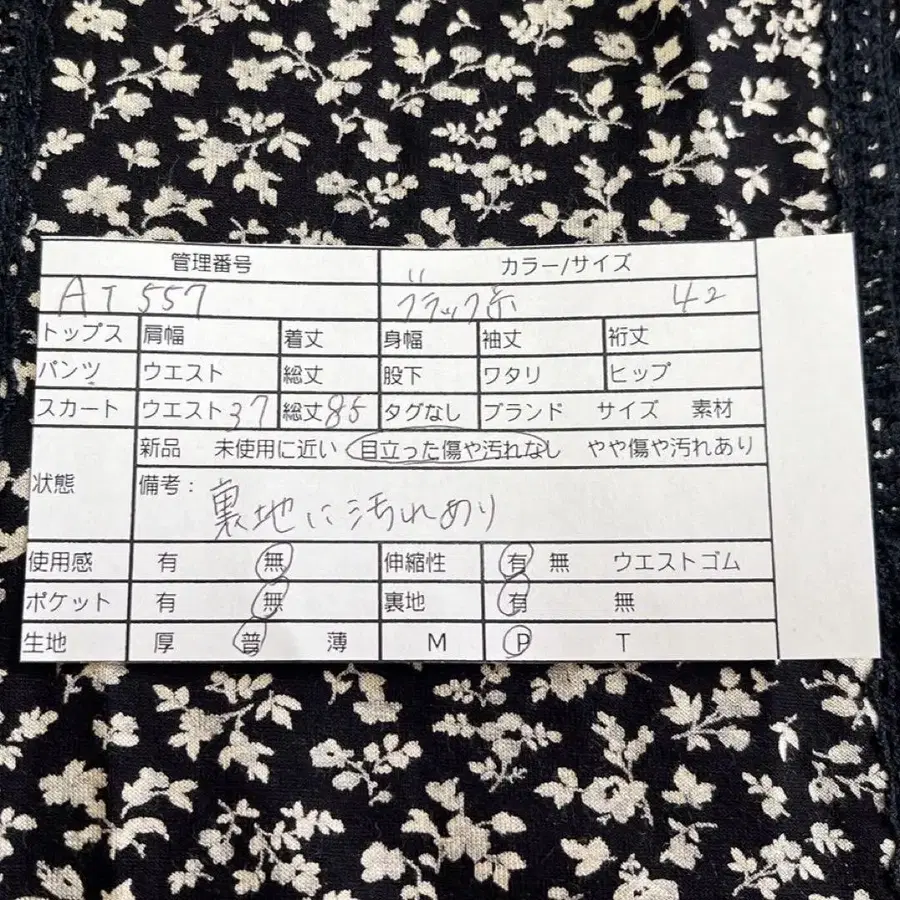 管理番号 カラー/サイズ
AT557 ブラック系 42
トップス 肩幅 着丈 身幅 袖丈 裄丈
パンツ ウエスト 総丈 股下 ワタリ ヒップ
スカート ウエスト37 総丈85 タグなし ブランド サイズ 素材
状態 新品 未使用に近い 目立った傷や汚れなし やや傷や汚れあり
備考：裏地に汚れあり
使用感 有 無 伸縮性 有 無 ウエストゴム
ポケット 有 無 裏地 有 無
生地 厚 普 薄 M P T